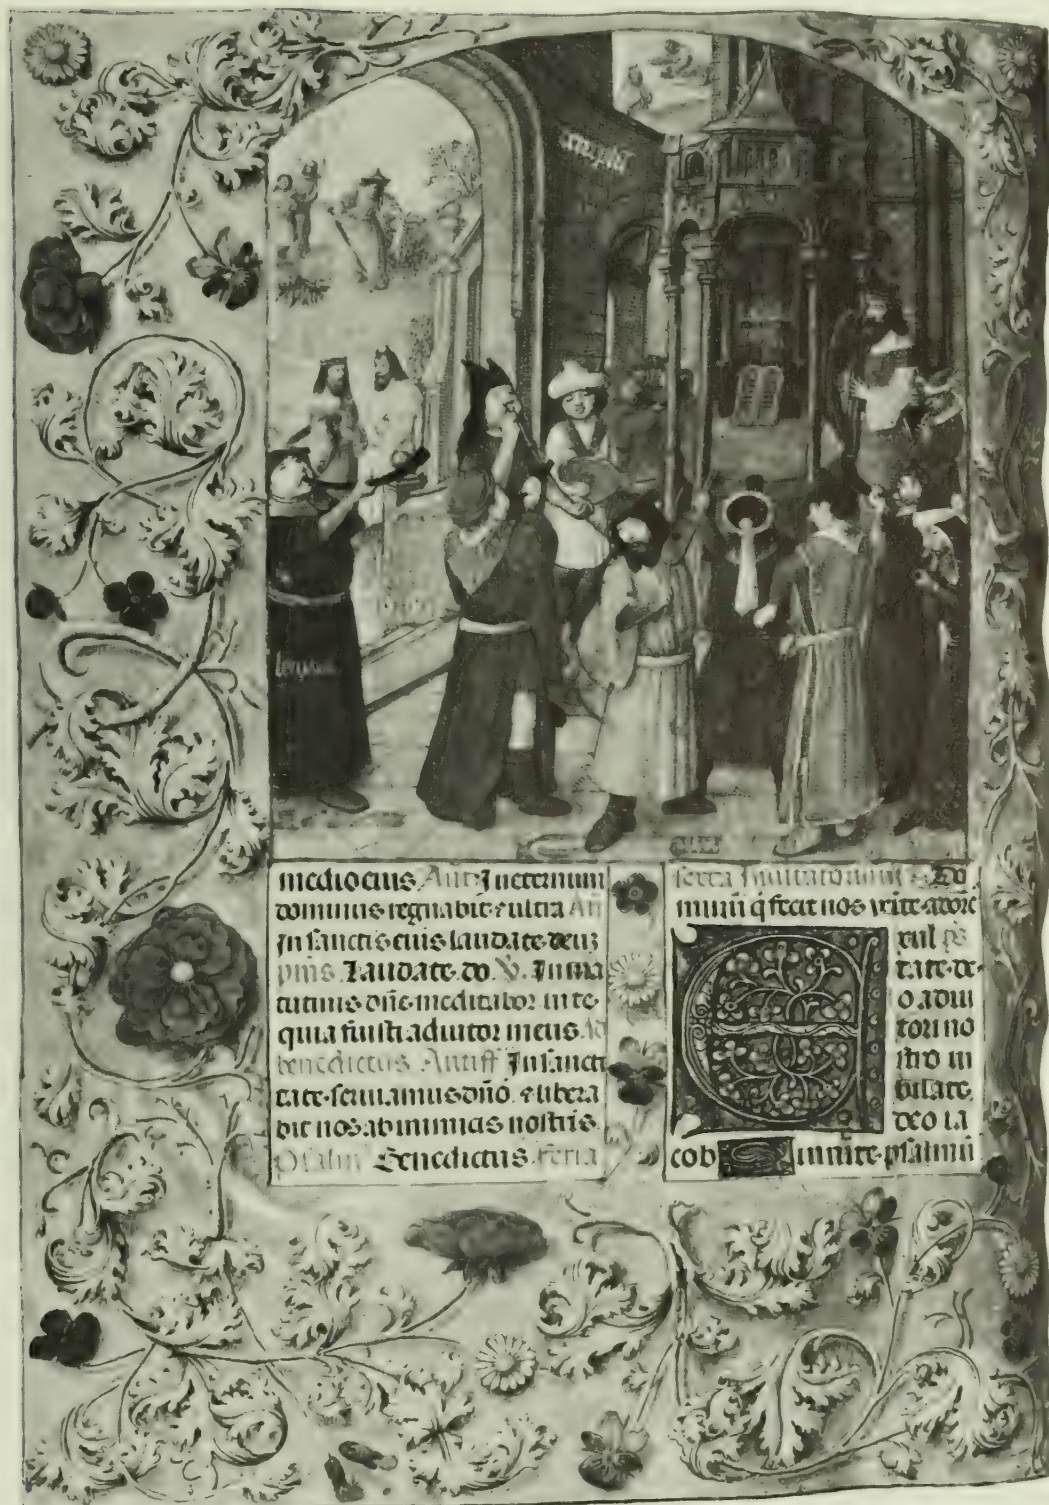 mediocius Ant Ineternum
dominus regnabit et ultra An
In sanctis eius laudate deuz
pm̄s Laudate do V. In ma
tutinis dn̄e meditabor in te
quia fuisti adiutor meus
benedictus Antiff In sancti
tate seruiamus dn̄o et libera
bit nos ab inimicis nostris
Benedictus feria
Do
minū q̄ fecit nos
xul
tate de
o adiu
tori no
stro iu
bilate
deo ia
cob
psalmū